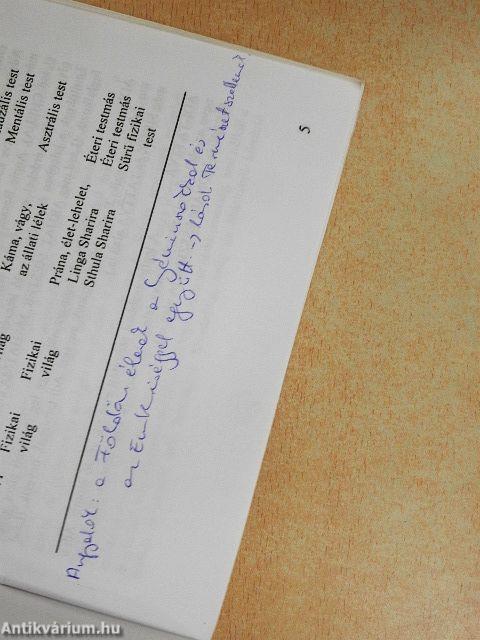 Mentális test
Káma, vágy,
az állati lélek
Asztrális test
Fizikai
világ
Fizikai
világ
Prána, élet-lehelet,
Linga Sharira
Sthula Sharira
Éteri testmás
Éteri testmás
Sűrű fizikai
test
Angyalok: a Földön élnek a és
az Emberiséggel együtt. → Lásd Természetszellemek.
5
Antikvárium.hu